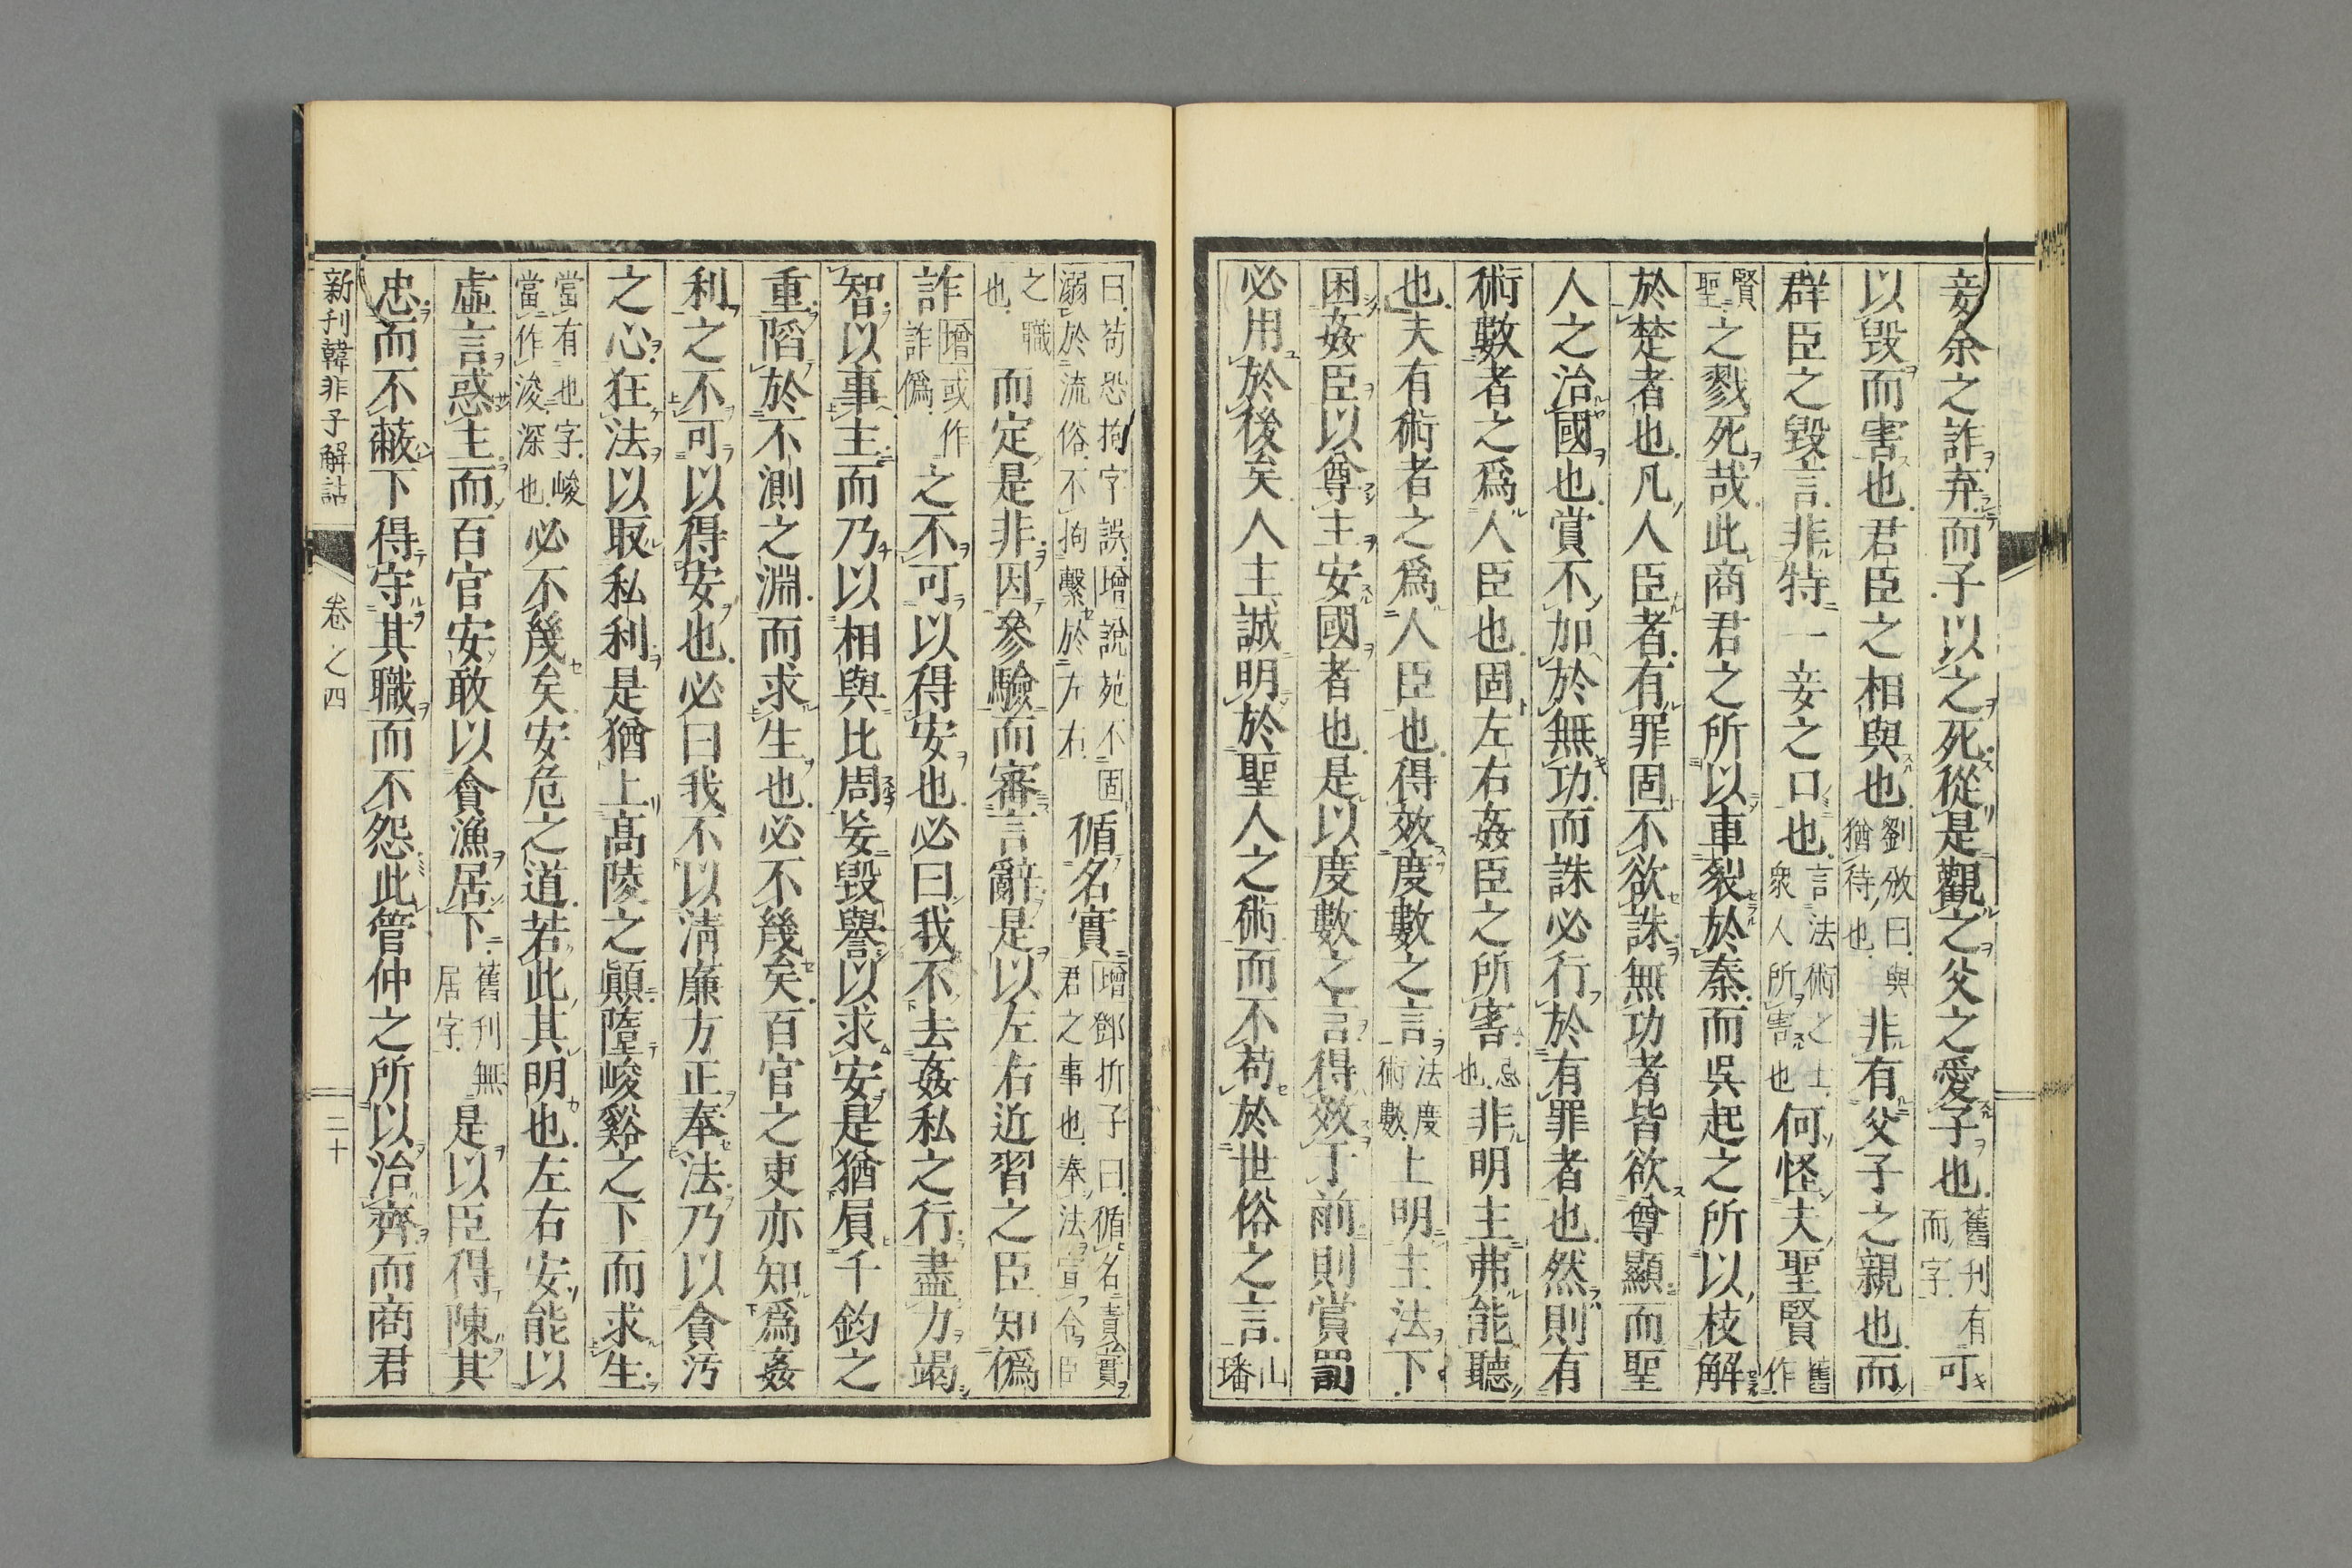 妾余之詐弃而子以之死從是觀之父之愛子也舊刊有而字可
以毀而害也君臣之相與也劉攽曰與猶待也非有父子之親也而
群臣之毀言非特一妾之口也言法術之士衆人所害也何怪夫聖賢舊作
賢聖之戮死哉此商君之所以車裂於秦而吳起之所以枝解
於楚者也凡人臣者有罪固不欲誅無功者皆欲尊顯而聖
人之治國也賞不加於無功而誅必行於有罪者也然則有
術數者之爲人臣也固左右姦臣之所害忌也非明主弗能聽
也夫有術者之爲人臣也得效度數之言法度術數上明主法下
困姦臣以尊主安國者也是以度數之言得效于前則賞罰
必用於後矣人主誠明於聖人之術而不苟於世俗之言山璠
曰苟恐拘字誤增說苑不固溺於流俗不拘繫於左右循名實增鄧析子曰循名責實君之事也奉法宣令臣
之職也而定是非因參驗而審言辭是以左右近習之臣知僞
詐增或作詐僞之不可以得安也必曰我不去姦私之行盡力竭
智以事主而乃以相與比周妄毀譽以求安是猶負千鈞之
重陷於不測之淵而求生也必不幾矣百官之吏亦知爲姦
利之不可以得安也必曰我不以淸廉方正奉法乃以貪汚
之心狂法以取私利是猶上高陵之顚墮峻谿之下而求生
當有也字峻當作浚深也必不幾矣安危之道若此其明也左右安能以
虛言惑主而百官安敢以貪漁居下舊刊無居字是以臣得陳其
忠而不蔽下得守其職而不怨此管仲之所以治齊而商君
新刊韓非子解詁 卷之四 二十